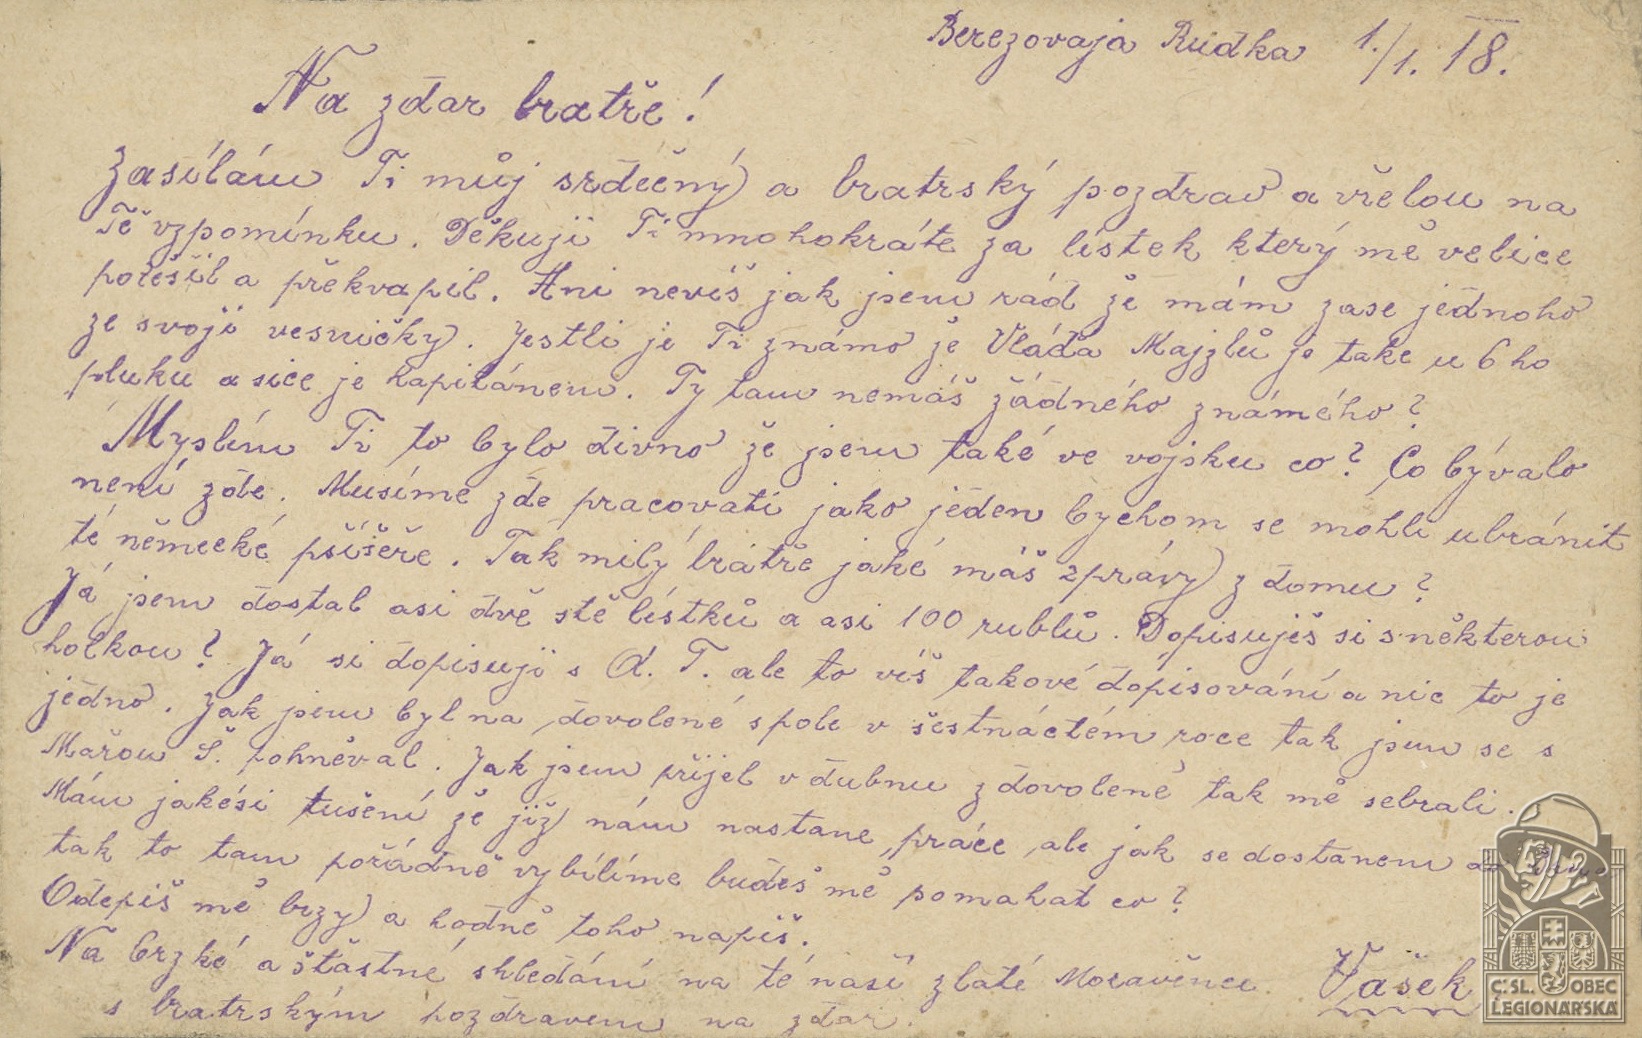 Berezovaja Rudka 1./1. 18.
Na zdar bratře!
Zasílám Ti můj srdečný a bratrský pozdrav a vřelou na
Tě vzpomínku. Děkuji Ti mnohokráte za lístek který mě velice
potěšil a překvapil. Ani nevíš jak jsem rád že mám zase jednoho
ze svojí vesničky. Jestli je Ti známo že Vláďa Majzlů je take u 6ho
pluku a sice je kapitánem. Ty tam nemáš žádného známého?
Myslím Ti to bylo divno že jsem také ve vojsku co? Co bývalo
není zde. Musíme zde pracovati jako jeden bychom se mohli ubránit
té německé příšeře. Tak milý bratře jaké máš zprávy z domu?
Já jsem dostal asi dvě stě lístků a asi 100 rublů. Dopisuješ si s některou
holkou? Já si dopisuji s A. T. ale to víš takové dopisování a nic to je
jedno. Jak jsem byl na dovolené spole v šestnáctém roce tak jsem se s
Mařou Š. pohněval. Jak jsem přijel v dubnu z dovolené tak mě sebrali.
Mám jakési tušení že již nám nastane práce ale jak se dostanem
tak to tam pořádně vybílíme budeš mě pomahat co?
Odepiš mě brzy a hodně toho napiš.
Na brzké a šťastné shledání na té naší zlaté Moravěnce. Vašek
s bratrským pozdravem na zdar.
Č. SL. OBEC
LEGIONÁŘSKÁ